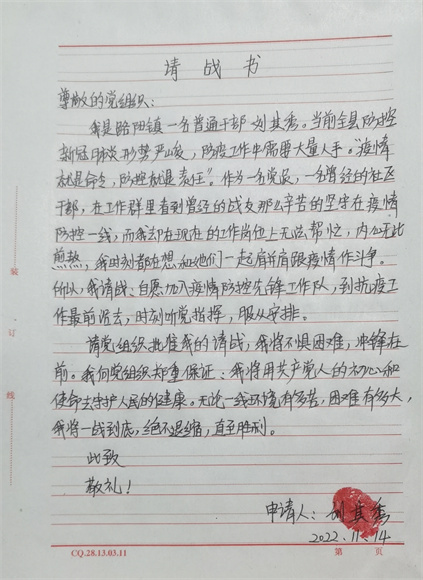 请战书
尊敬的党组织：
我是路阳镇一名普通干部刘其秀。当前全县防控
新冠肺炎形势严峻，防疫工作中需要大量人手。“疫情
就是命令，防控就是责任”。作为一名党员，一名曾经的社区
干部，在工作群里看到曾经的战友那么辛苦的坚守在疫情
防控一线，而我却在现在的工作岗位上无法帮忙，内心无比
煎熬，我时刻都在想和他们一起肩并肩跟疫情作斗争。
所以，我请战：自愿加入疫情防控先锋工作队，到抗疫工
作最前沿去，时刻听党指挥，服从安排。
请党组织批准我的请战，我将不惧困难，冲锋在
前。我向党组织郑重保证：我将用共产党人的初心和
使命去守护人民的健康。无论一线环境有多苦，困难有多大，
我将一战到底，绝不退缩，直至胜利。
此致
敬礼！
申请人：刘其秀
2022.11.14
装
订
线
CQ.28.13.03.11
第 页